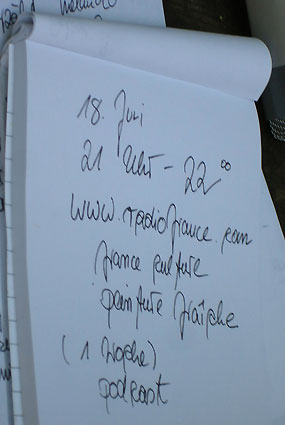 18. Juni
21 Uhr - 22⁰⁰
www.radiofrance.com
france culture
peinture fraîche
(1 Woche)
podcast